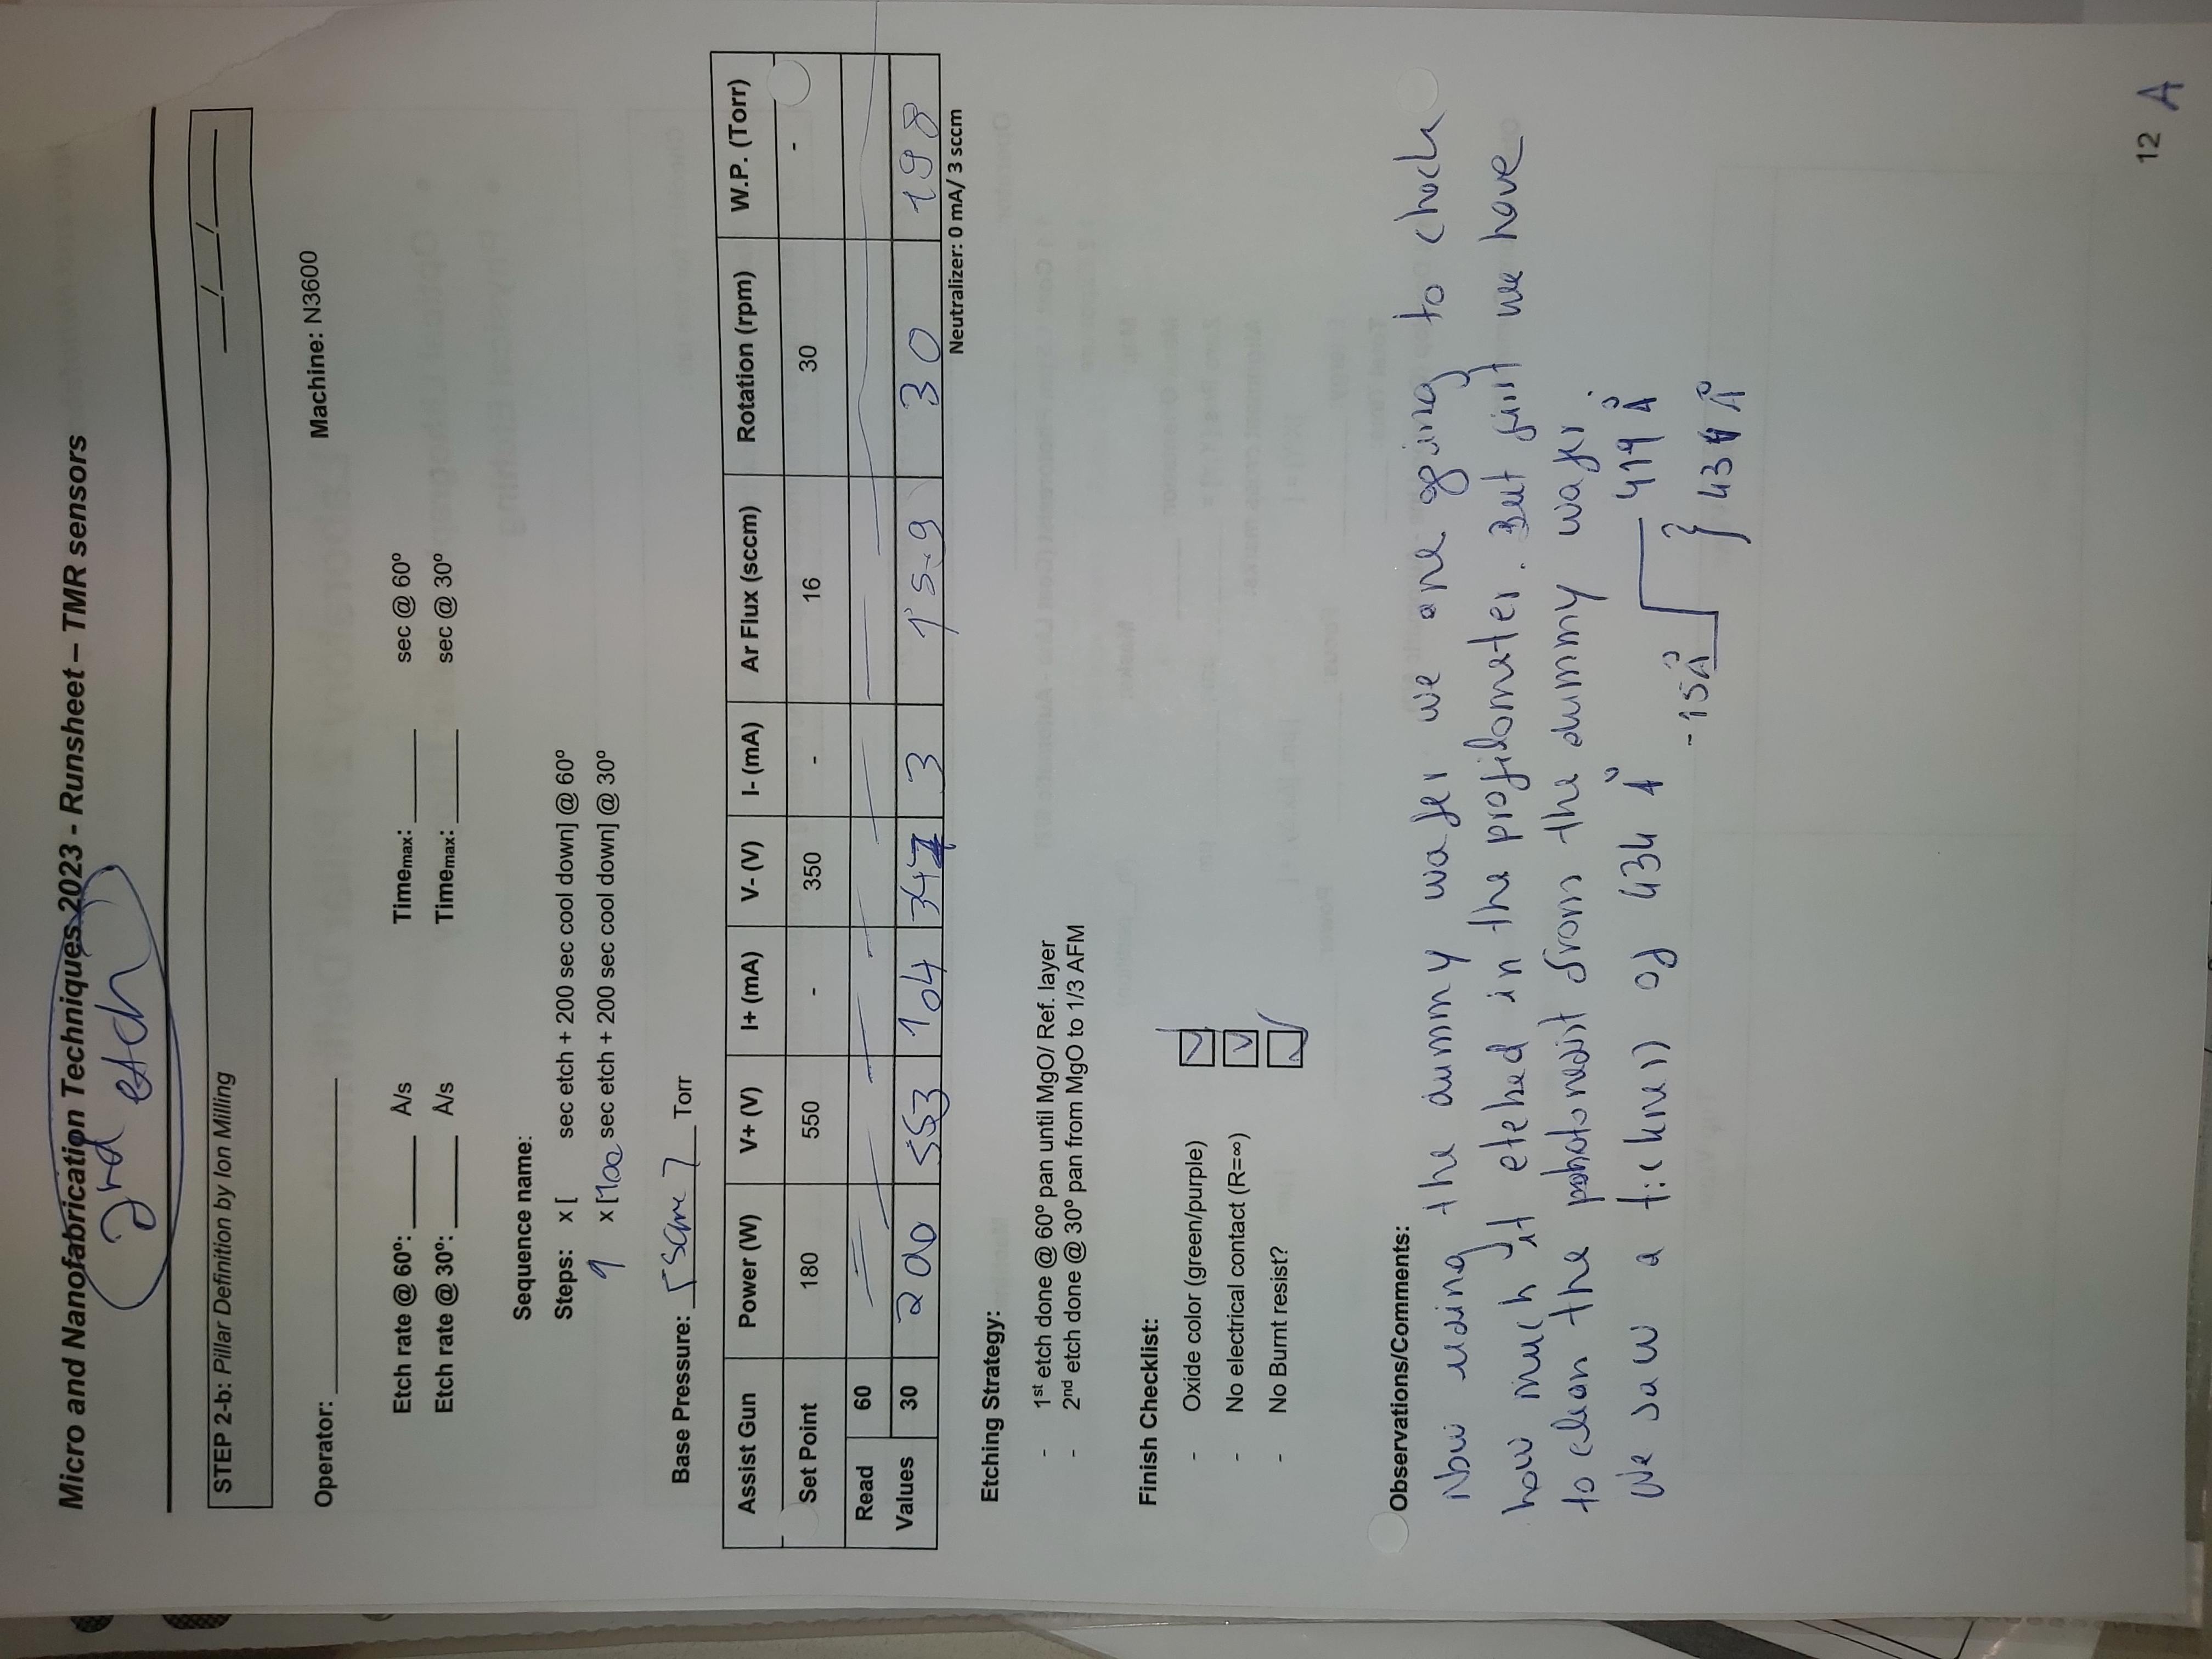 Micro and Nanofabrication Techniques 2023 - Runsheet – TMR sensors
2nd etch
STEP 2-b: Pillar Definition by Ion Milling ___/___/______
Operator: ____________ Machine: N3600
Etch rate @ 60º: ______ Å/s Timemax: ______ sec @ 60º
Etch rate @ 30º: ______ Å/s Timemax: ______ sec @ 30º
Sequence name:
Steps: x [ sec etch + 200 sec cool down] @ 60º
1 x [100 sec etch + 200 sec cool down] @ 30º
Base Pressure: same Torr
Assist Gun Power (W) V+ (V) I+ (mA) V- (V) I- (mA) Ar Flux (sccm) Rotation (rpm) W.P. (Torr)
Set Point 180 550 - 350 - 16 30 -
Read Values 60
30 200 553 104 347 3 15.9 30 198
Neutralizer: 0 mA/ 3 sccm
Etching Strategy:
- 1st etch done @ 60º pan until MgO/ Ref. layer
- 2nd etch done @ 30º pan from MgO to 1/3 AFM
Finish Checklist:
- Oxide color (green/purple) ✓
- No electrical contact (R=∞) ✓
- No Burnt resist? ✓
Observations/Comments:
Now using the dummy wafer we are going to check
how much it etched in the profilometer. But first we have
to clean the photoresist from the dummy wafer.
We saw a tickness of 434 Å
419 Å
-15Å
434 Å
12 A